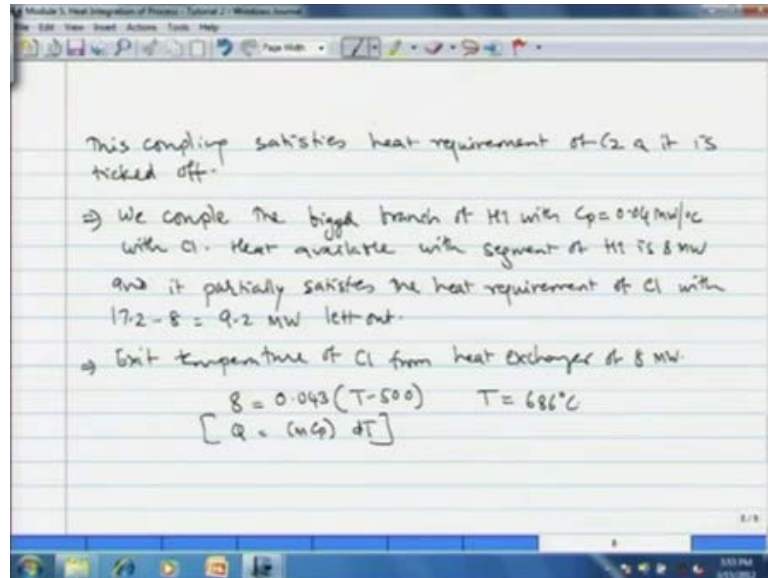 Module 5, Heat Integration of Process - Tutorial 2 - Windows Journal
File Edit View Insert Actions Tools Help
Page Width
This coupling satisfies heat requirement of C2 & it is
ticked off.
⇒ We couple the bigger branch of H1 with Cp = 0.04 MW/°C
with C1. Heat available with segment of H1 is 8 MW
and it partially satisfies the heat requirement of C1 with
17.2 - 8 = 9.2 MW left out.
⇒ Exit temperature of C1 from heat exchanger of 8 MW.
8 = 0.043 (T - 500) T = 686°C
[ Q = (mCp) dT ]
8 / 8
8
3:53 PM